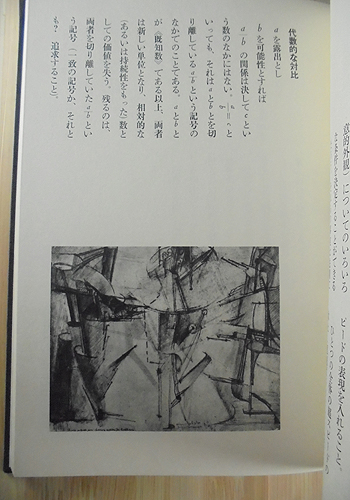 ピードの表現を入れること、
的外観）についてのいろいろ
代数的な対比
aを露出とし
bを可能性とすれば
a/bの関係は決してcとい
う数のなかにはない。a/b=cと
いっても、それはaとbとを切
り離しているa/bという記号の
なかでのことである。aとbと
が〈既知数〉である以上、両者
は新しい単位となり、相対的な
（あるいは持続性をもった）数と
しての価値を失う。残るのは、
両者を切り離していたa/bとい
う記号（一致の記号か、それと
も？ 追求すること）。